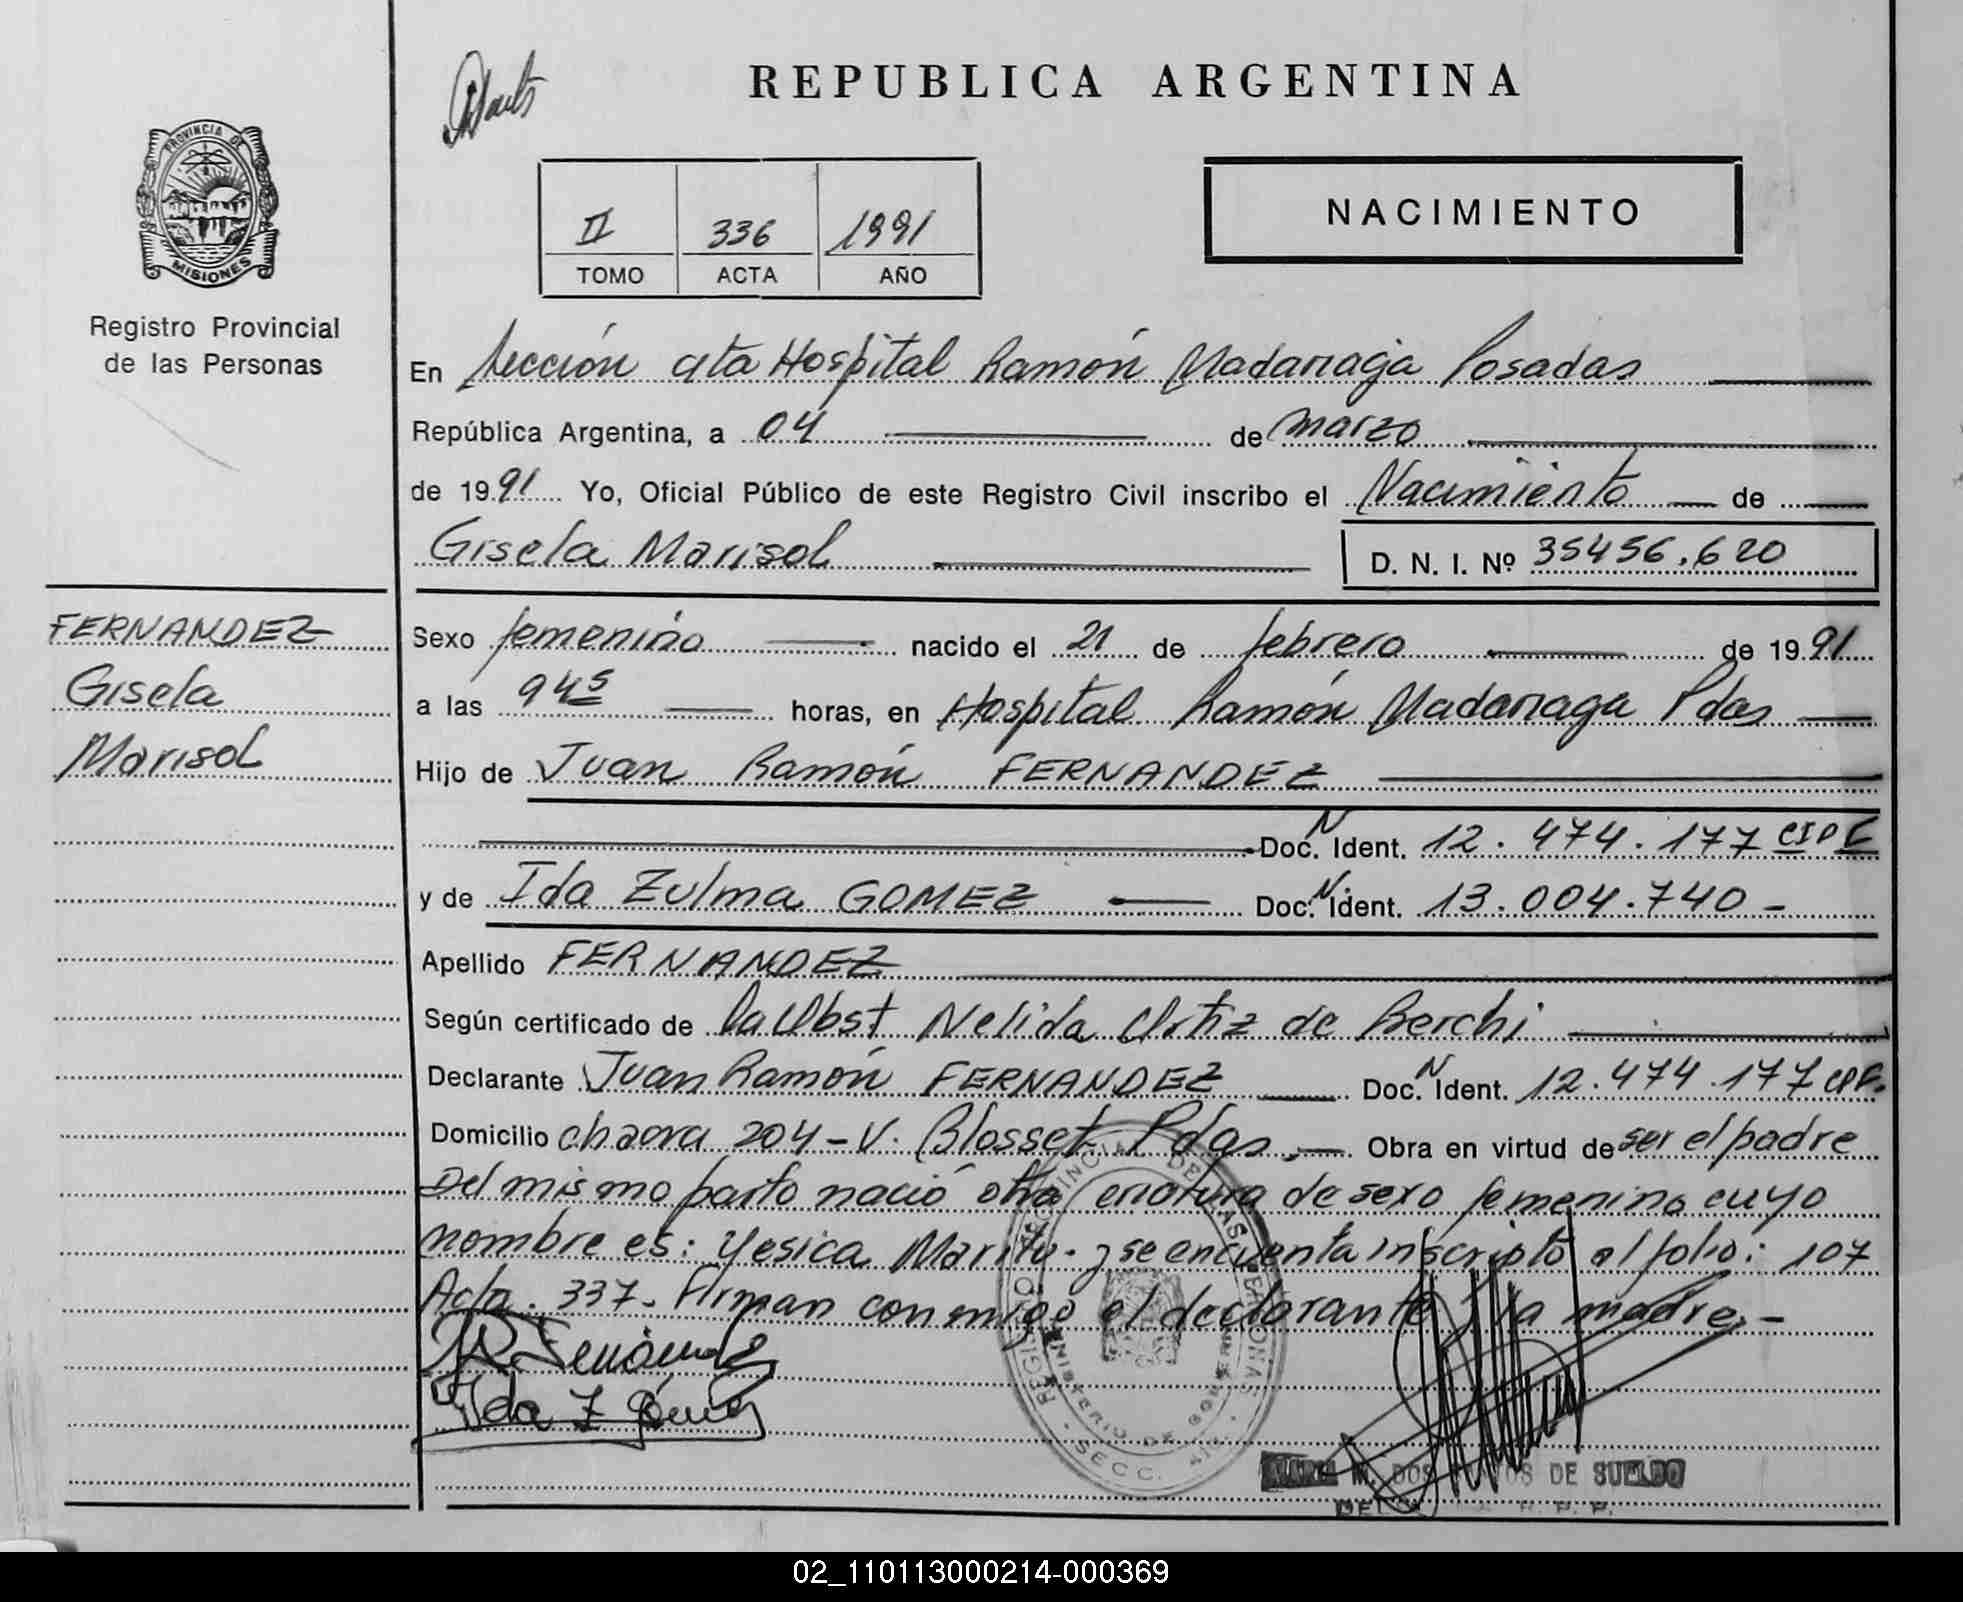 REPUBLICA ARGENTINA
PROVINCIA DE
MISIONES
Registro Provincial
de las Personas
II 336 1991
TOMO ACTA AÑO
NACIMIENTO
En Sección 4ta Hospital Ramón Madariaga Posadas
República Argentina, a 04 de marzo
de 1991 Yo, Oficial Público de este Registro Civil inscribo el Nacimiento de
Gisela Marisol D. N. I. Nº 35456.620
FERNANDEZ
Gisela
Marisol
Sexo femenino nacido el 21 de febrero de 1991
a las 9 45 horas, en Hospital Ramón Madariaga Pdas
Hijo de Juan Ramón FERNANDEZ
Doc. N Ident. 12.474.177
y de Ida Zulma GOMEZ Doc. N. Ident. 13.004.740 -
Apellido FERNANDEZ
Según certificado de La Obst Nelida Ortiz de Berchi
Declarante Juan Ramón FERNANDEZ Doc. N Ident. 12.474.177
Domicilio chacra 204 - V. Blosset Pdas, Obra en virtud de ser el padre
Del mismo parto nació otra criatura de sexo femenino cuyo
nombre es: Yesica y se encuenta inscripto al folio: 107
Acta. 337. Firman conmigo el declarante y la madre. -
Ida Z Gómez
DE SUELDO
R. P. P.
02_110113000214-000369